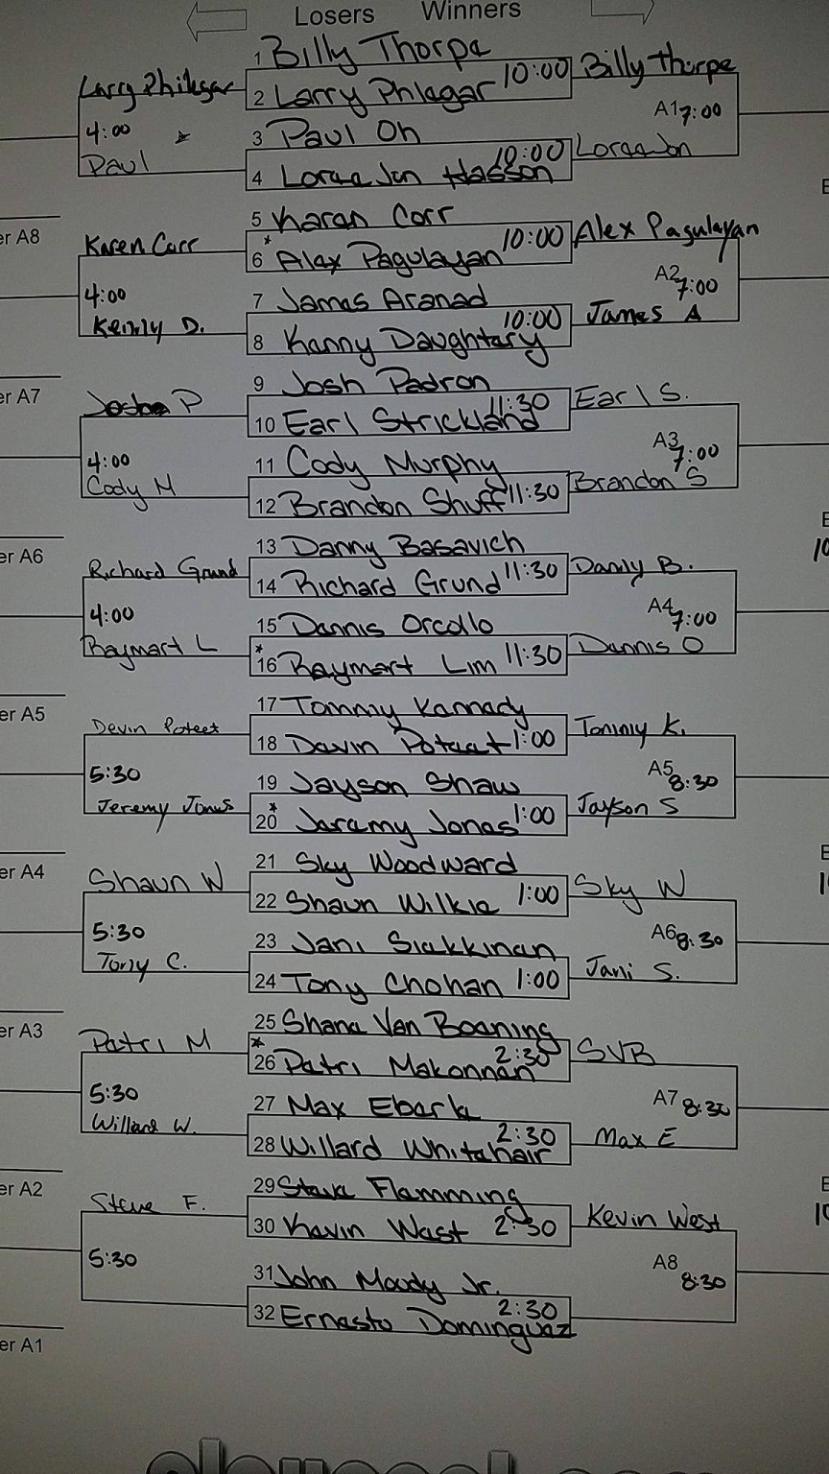 Losers Winners
1 Billy Thorpe
Larry Phlegar 10:00 Billy thorpe
2 Larry Phlegar
4:00 A1 7:00
3 Paul Oh
Paul 10:00 Loree Jon
4 Loree Jon Hasson
er A8
5 Karen Corr
Karen Corr 10:00 Alex Pagulayan
* 6 Alex Pagulayan
4:00 A2 7:00
7 James Aranad
Kenny D. 10:00 James A
8 Kenny Daughtery
er A7
9 Josh Padron
Josh P 11:30 Earl S.
10 Earl Strickland
4:00 A3 7:00
11 Cody Murphy
Cody M 11:30 Brandon S
12 Brandon Shuff
er A6
13 Danny Basavich
Richard Grund 11:30 Danny B.
14 Richard Grund
4:00 A4 7:00
15 Dennis Orcollo
Raymart L 11:30 Dennis O
* 16 Raymart Lim
er A5
17 Tommy Kennedy
Devin Poteet 1:00 Tommy K.
18 Devin Poteet
5:30 A5 8:30
19 Jayson Shaw
Jeremy Jones 1:00 Jayson S
* 20 Jeremy Jones
er A4
21 Sky Woodward
Shaun W 1:00 Sky W
22 Shaun Wilkie
5:30 A6 8:30
23 Jani Siekkinen
Tony C. 1:00 Jani S.
24 Tony Chohan
er A3
25 Shane Van Boening
Petri M 2:30 SVB
* 26 Petri Makonnen
5:30 A7 8:30
27 Max Eberle
Willard W. 2:30 Max E
28 Willard Whitehair
er A2
29 Steve Flemming
Steve F. 2:30 Kevin West
30 Kevin West
5:30 A8 8:30
31 John Moody Jr.
2:30
32 Ernesto Dominguez
er A1